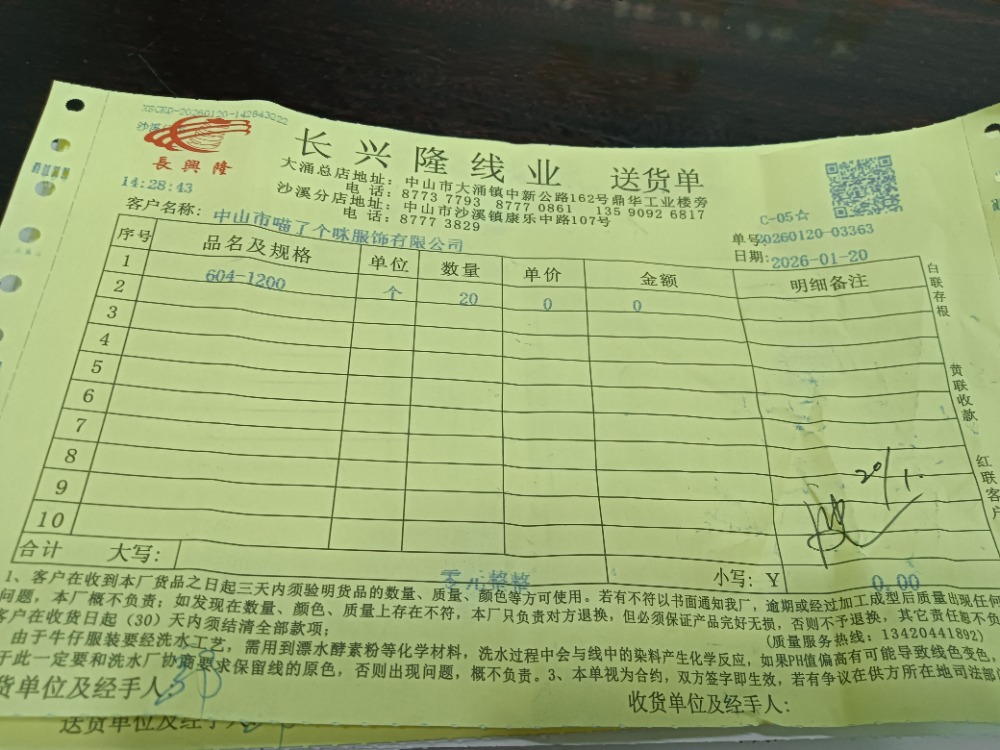 XSCKD-20260120-142843022
長興隆
长兴隆线业 送货单
大涌总店地址：中山市大涌镇中新公路162号鼎华工业楼旁
电 话：8773 7793 8777 0861 135 9092 6817
沙溪分店地址：中山市沙溪镇康乐中路107号
电 话：8777 3829
14:28:43
C-05☆
客户名称：中山市喵了个咪服饰有限公司
单号 20260120-03363
日期：2026-01-20
序号 品名及规格 单位 数量 单价 金额 明细备注
1 604-1200 个 20 0 0
2
3
4
5
6
7
8
9
10
20/1.
合计 大写： 零元整整 小写：Y 0.00
白联存根
黄联收款
红联客户
1、客户在收到本厂货品之日起三天内须验明货品的数量、质量、颜色等方可使用。若有不符以书面通知我厂，逾期或经过加工成型后质量出现任何
问题，本厂概不负责；如发现在数量、颜色、质量上存在不符，本厂只负责对方退换，但必须保证产品完好无损，否则不予退换，其它责任恕不负
客户在收货日起（30）天内须结清全部款项；
（质量服务热线：13420441892）
由于牛仔服装要经洗水工艺，需用到漂水酵素粉等化学材料，洗水过程中会与线中的染料产生化学反应，如果PH值偏高有可能导致线色变色，
于此一定要和洗水厂协商要求保留线的原色，否则出现问题，概不负责。3、本单视为合约，双方签字即生效，若有争议在供方所在地司法部
货单位及经手人
收货单位及经手人：
送货单位及经手人